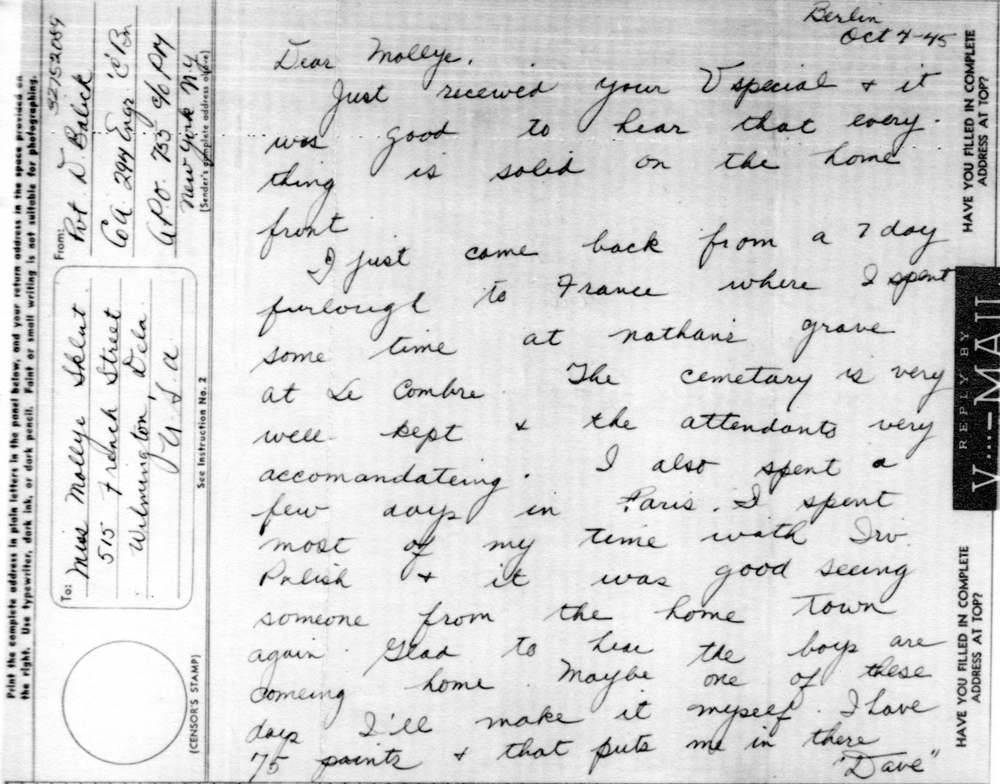 Print the complete address in plain letters in the panel below, and your return address in the space provided on
the right. Use typewriter, dark ink, or dark pencil. Faint or small writing is not suitable for photographing.
From:
Pvt. D. Balick 32752089
Co A. 294 Engr. 'C' Bn
A.P.O. 755 c/o P.M
New York N.Y
[Sender's complete address above]
To:
Miss Mollye Sklut
515 French Street
Wilmington, Dela
U.S.a
See Instruction No. 2
(CENSOR'S STAMP)
Berlin
Oct 4-45
Dear Mollye,
Just received your V special & it
was good to hear that every-
thing is solid on the home
front
I just came back from a 7 day
furlough to France where I spent
some time at nathan's grave
at Le Combre. The cemetary is very
well kept & the attendants very
accomandateing. I also spent a
few days in Paris. I spent
most of my time with Irv.
& it was good seeing
someone from the home town
again. Glad to hear the boys are
comeing home. Maybe one of these
days I'll make it myself. I have
75 points & that puts me in there
"Dave"
HAVE YOU FILLED IN COMPLETE
ADDRESS AT TOP?
REPLY BY
V···—MAIL
HAVE YOU FILLED IN COMPLETE
ADDRESS AT TOP?